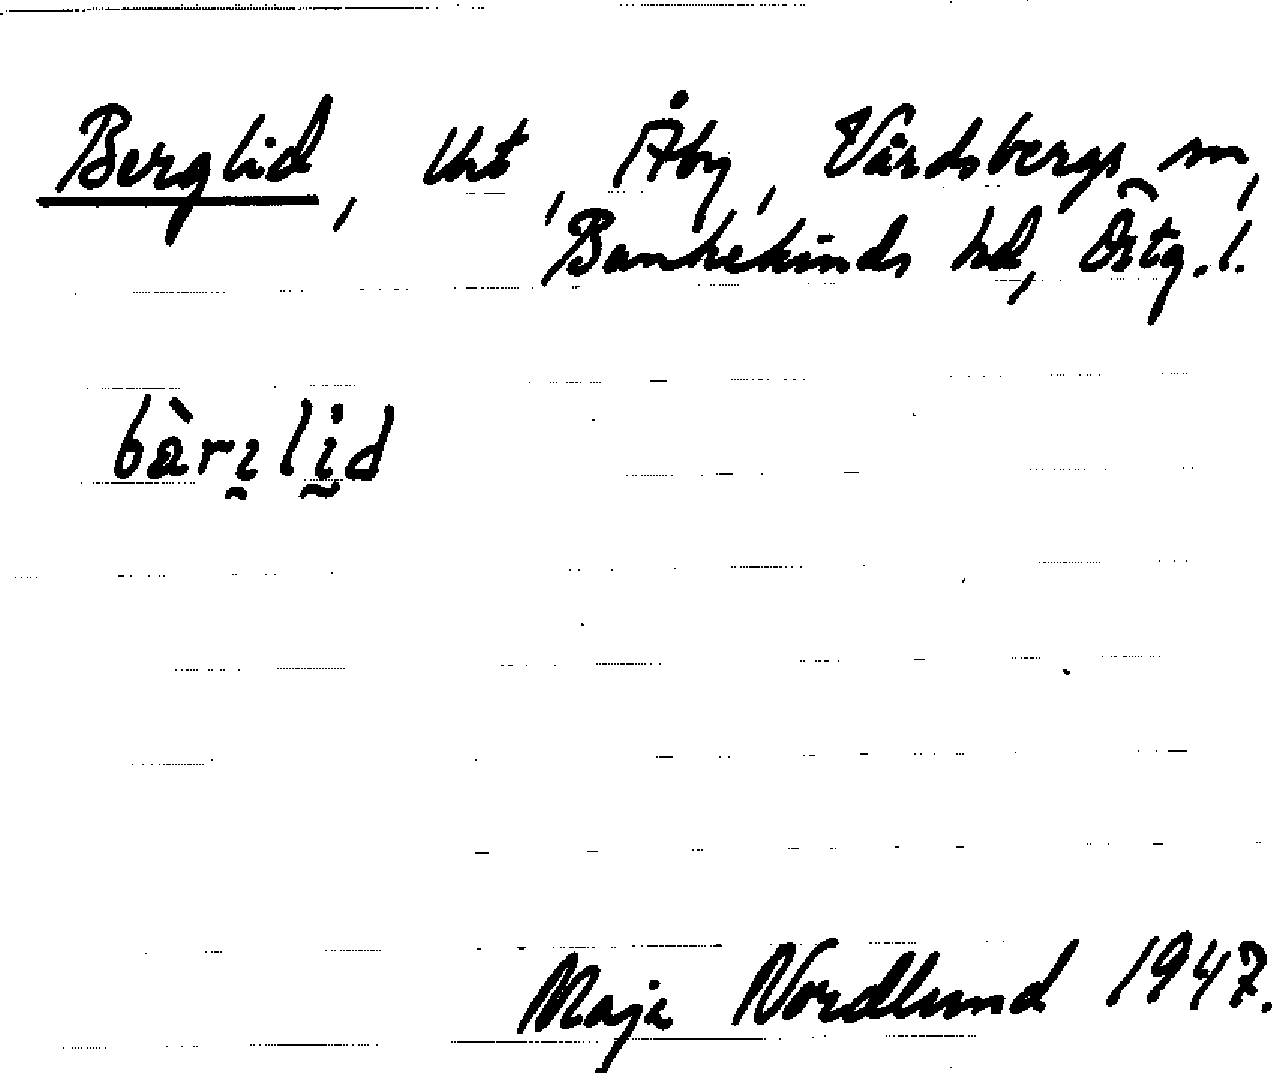 Berglid, Urt, Åby, Vårdsbergs sn,
Bankekinds hd, Östg. l.
bàrɪlɪ̰d
Maja Nordlund 1947.